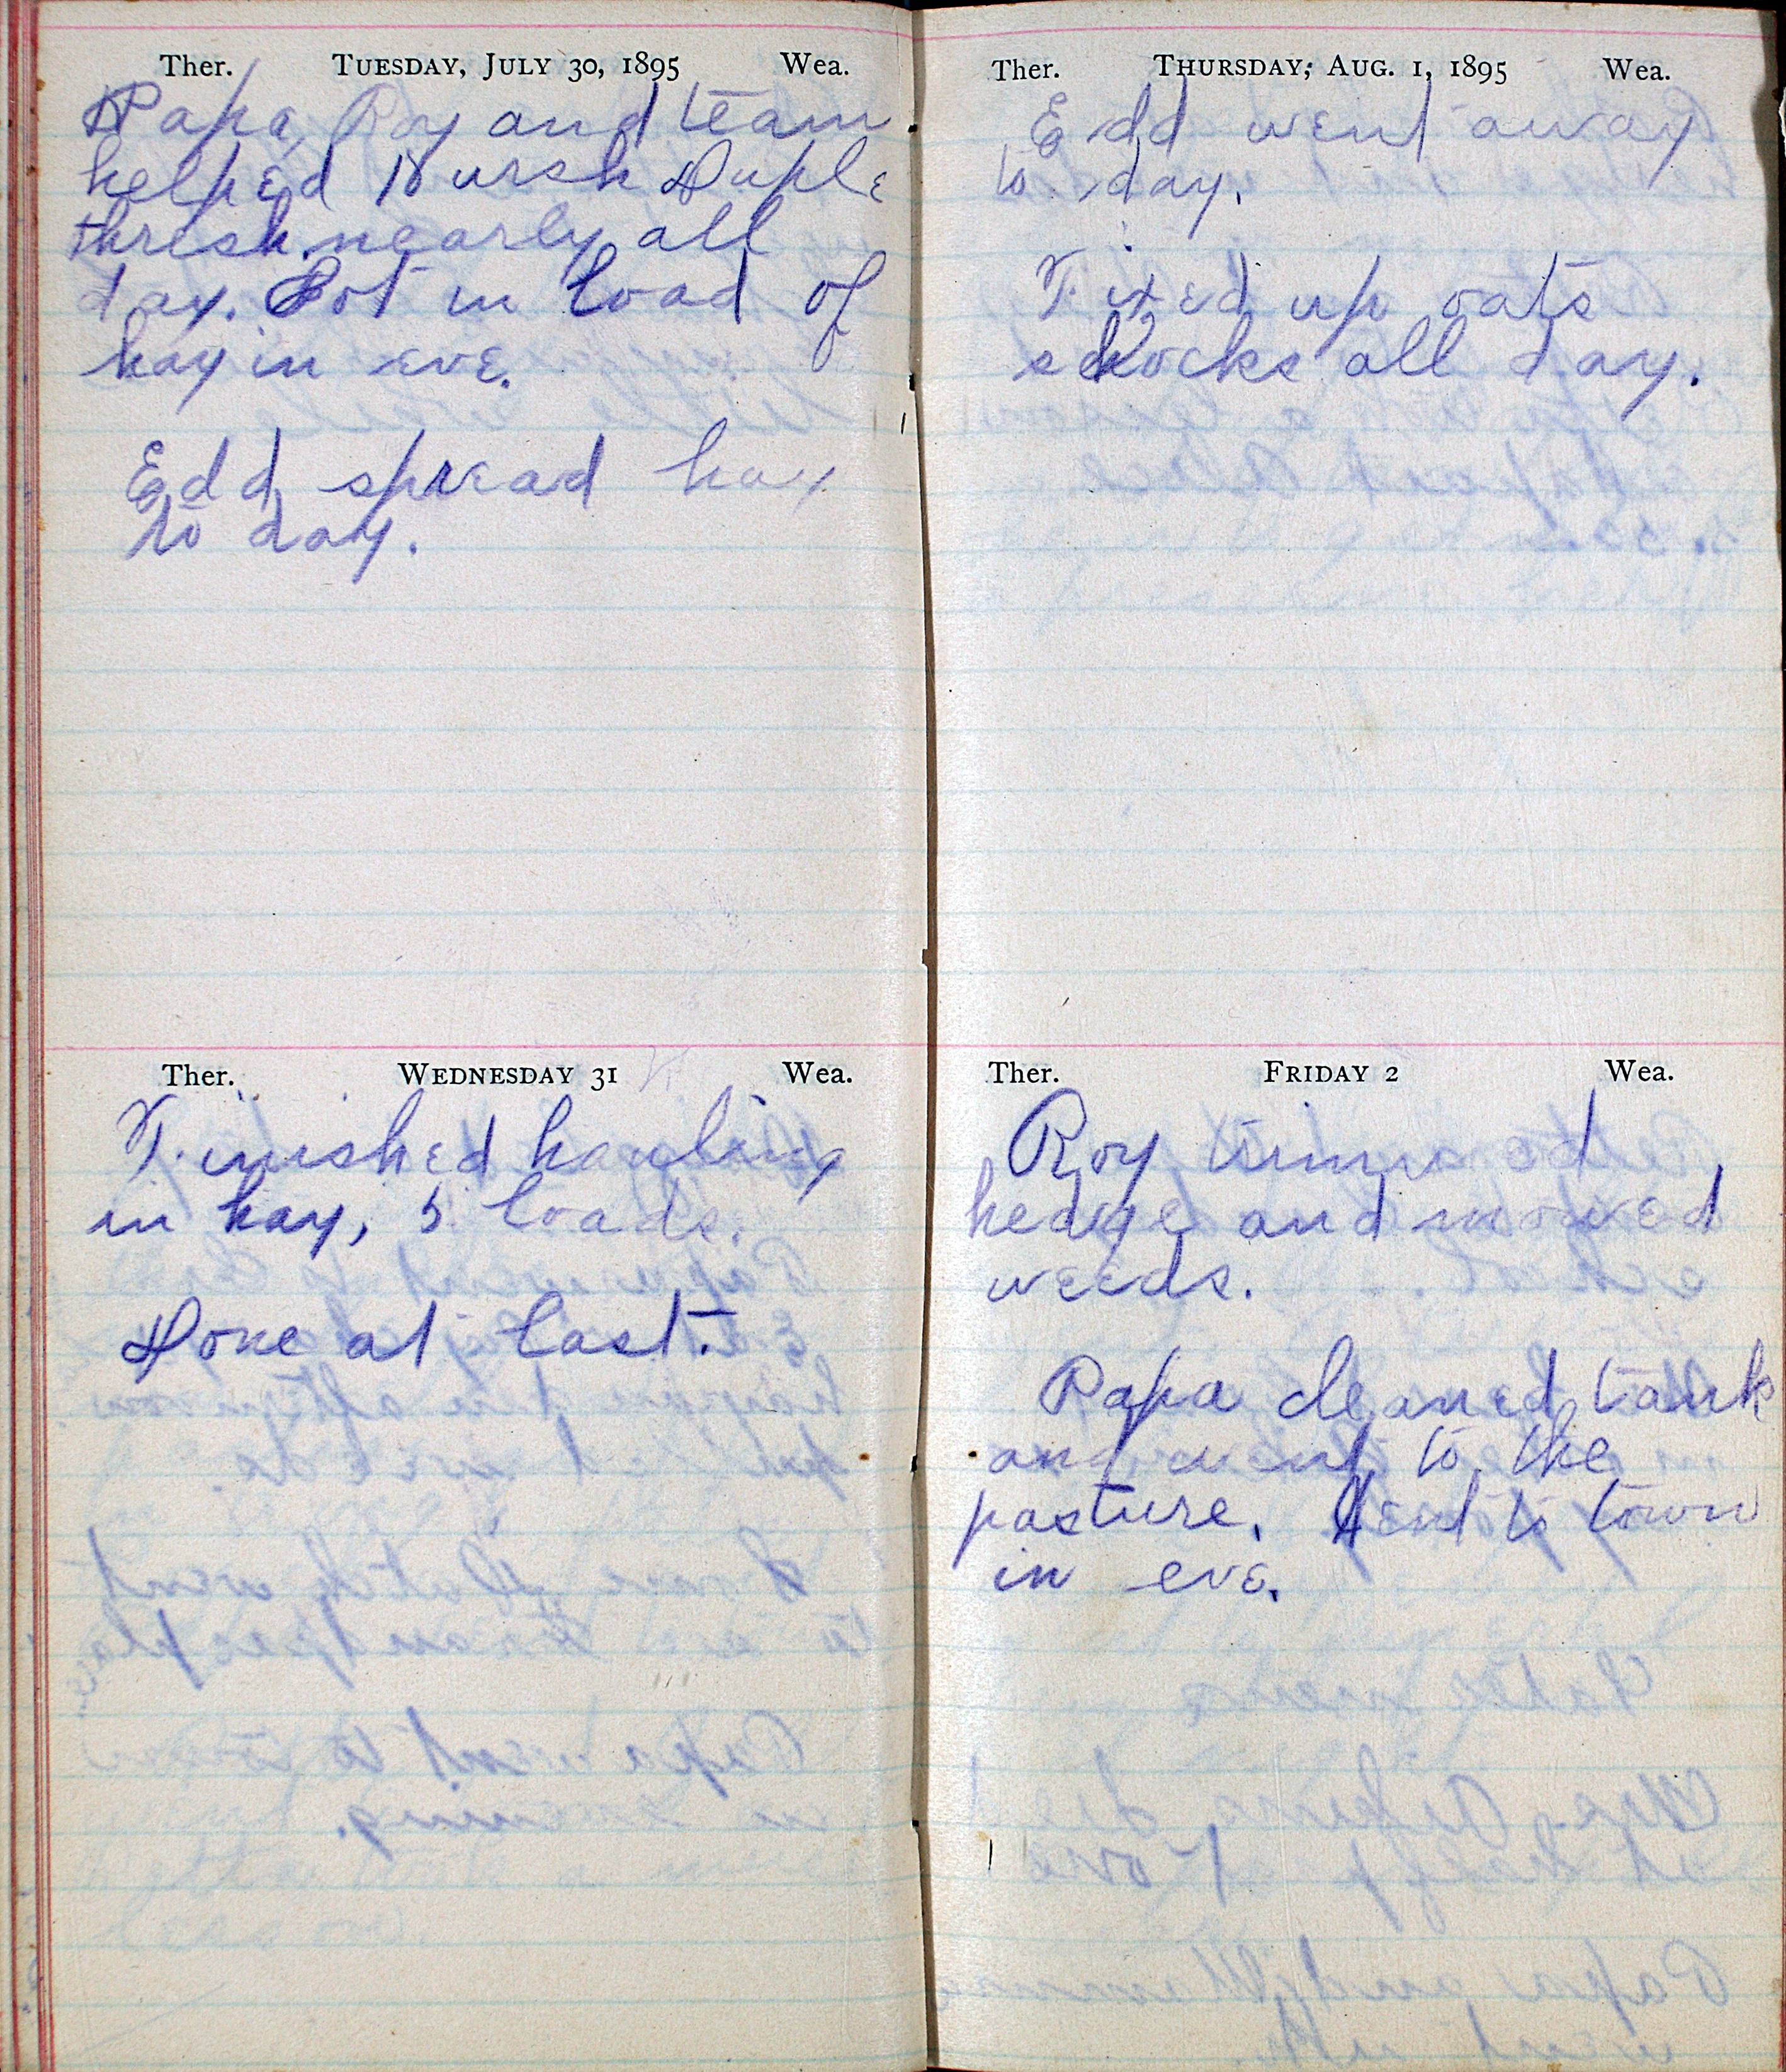 Ther. TUESDAY, JULY 30, 1895 Wea.
Papa, Roy and team
helped Duple
thresh nearly all
day. Got in load of
hay in eve.
Edd spread hay
to day.
Ther. WEDNESDAY 31 Wea.
Finished hauling
in hay, 5 loads.
Done at last.
Ther. THURSDAY, AUG. 1, 1895 Wea.
Edd went away
to day.
Fixed up oats
schocks all day.
Ther. FRIDAY 2 Wea.
Roy trimmed
hedge and mowed
weeds.
Papa cleaned tank
and went to the
pasture. Went to town
in eve.